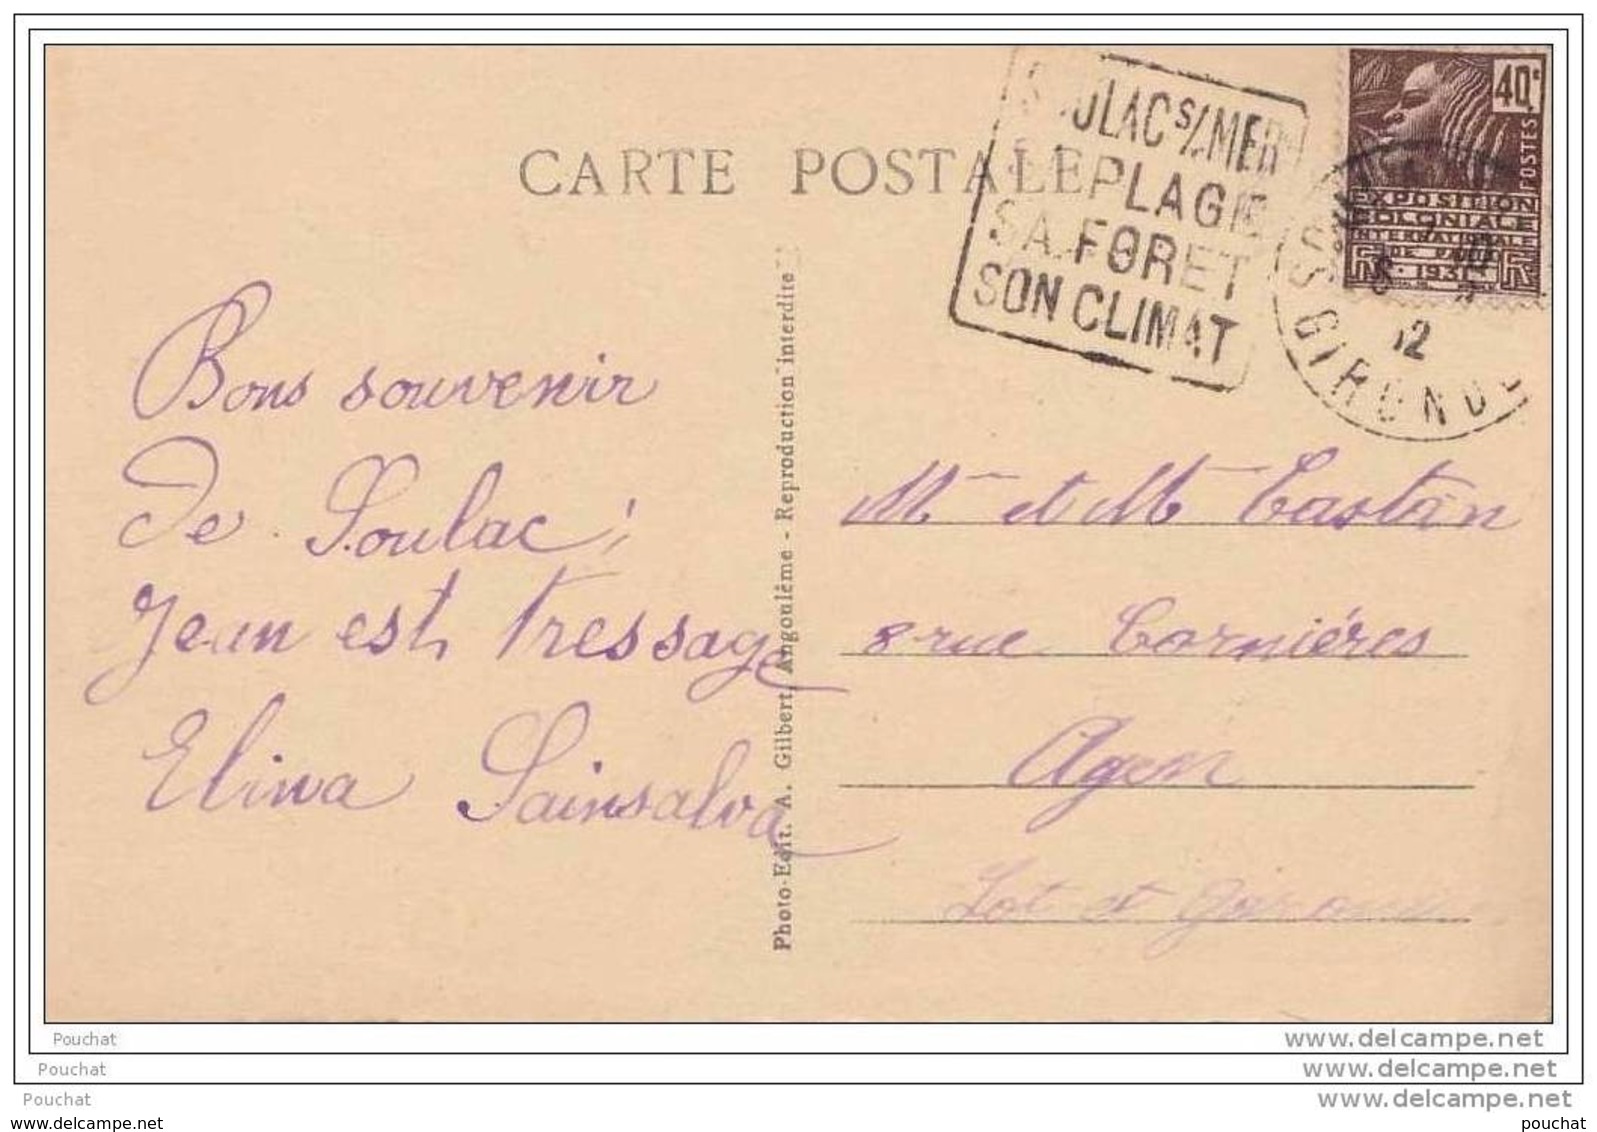 CARTE POSTALE
SOULAC S/MER
SA PLAGE
SA FORET
SON CLIMAT
40c
POSTES
EXPOSITION
COLONIALE
INTERNATIONALE
DE PARIS
1931
GIRONDE
Bons souvenir
de Soulac ;
Jean est tressage
Elina Sainsalva
Photo-Edit. A. Gilbert, Angoulême - Reproduction interdite
Mr et Me Castan
8 rue Cornières
Agen
Lot et Garonne
Pouchat
www.delcampe.net
Pouchat
www.delcampe.net
Pouchat
www.delcampe.net
www.delcampe.net
pouchat